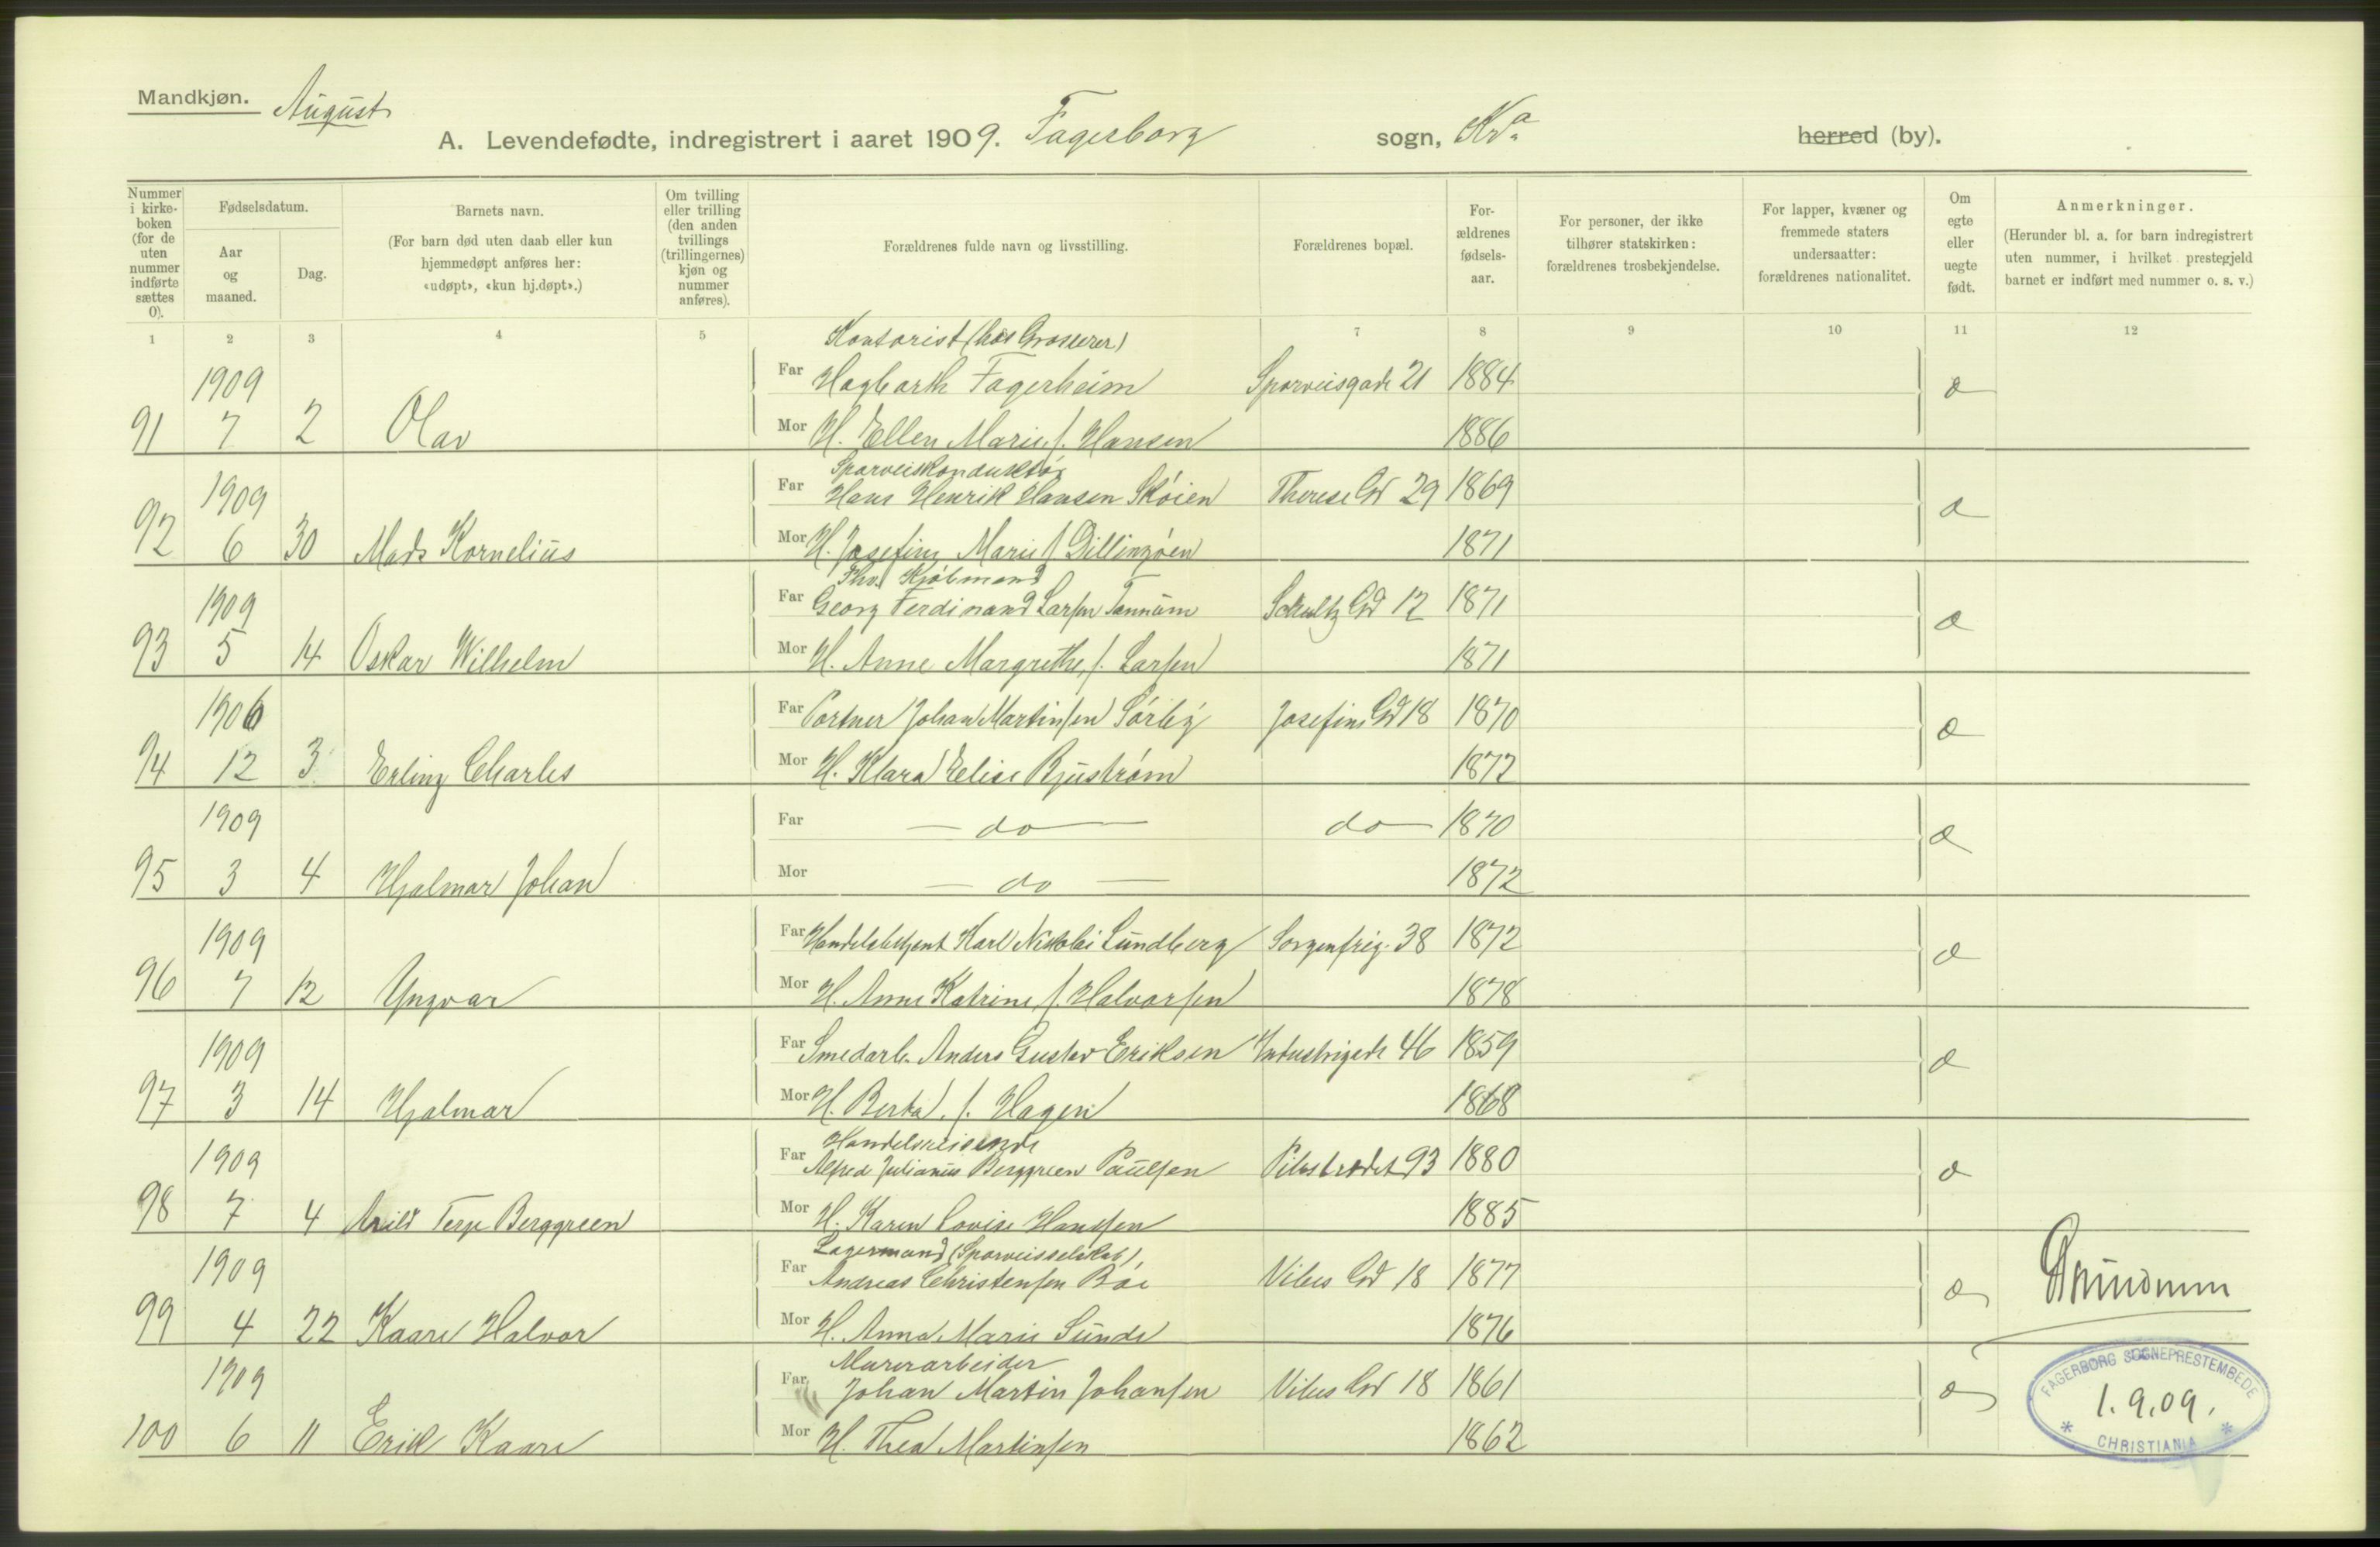 Mandkjøn. August
A. Levendefødte, indregistrert i aaret 1909. Fagerborg sogn, Kra. herred (by).
Nummer i kirkeboken (for de uten nummer indførte sættes 0).
Fødselsdatum.
Aar og maaned.
Dag.
Barnets navn.
(For barn død uten daab eller kun hjemmedøpt anføres her: «udøpt», «kun hj.døpt».)
Om tvilling eller trilling (den anden tvillings (trillingernes) kjøn og nummer anføres).
Forældrenes fulde navn og livsstilling.
Forældrenes bopæl.
Forældrenes fødselsaar.
For personer, der ikke tilhører statskirken: forældrenes trosbekjendelse.
For lapper, kvæner og fremmede staters undersaatter: forældrenes nationalitet.
Om egte eller uegte født.
Anmerkninger.
(Herunder bl. a. for barn indregistrert uten nummer, i hvilket prestegjeld barnet er indført med nummer o. s. v.)
1 2 3 4 5 7 8 9 10 11 12
Kontorist (hos Grosserer)
1909 Far Hagbarth Fagerheim Sporveisgade 21 1884 æ
91 7 2 Olav Mor H. Ellen Marie, f. Hansen 1886
Sporveiskonduktør
1909 Far Hans Henrik Hansen Skøien Therese Gd 29 1869 æ
92 6 30 Mads Kornelius Mor H. Josefine Marie f. Dillingøen 1871
Fhv. Kjøbmand
1909 Far Georg Ferdinand Larsen Tannum Schultz Gd 12 1871 æ
93 5 14 Oskar Wilhelm Mor H. Anne Margrethe, f. Larsen 1871
1906 Far Portner Johan Martinsen Sørby Josefine Gd 18 1870 æ
94 12 3 Erling Charles Mor H. Klara Elise Bjuström 1872
1909 Far — do — do — 1870 æ
95 3 4 Hjalmar Johan Mor — do — 1872
1909 Far Handelsbetjent Karl Nikolai Lundberg Sorgenfrig. 38 1872 æ
96 7 12 Yngvar Mor H. Anne Katrine, f. Halvorsen 1878
1909 Far Smedarb. Anders Gustav Eriksen Industrigade 46 1859 æ
97 3 14 Hjalmar Mor H. Berta, f. Hagen 1868
Handelsreisende
1909 Far Alfred Julianus Berggreen Paulsen Pilestrædet 93 1880 æ
98 7 4 Arild Terje Berggreen Mor H. Karen Lovise Hansen 1885
Lagermand (Sporveisselskab)
1909 Far Andreas Christensen Bøe Vibes Gd 18 1877 æ
99 4 22 Kaare Halvor Mor H. Anna Marie Sunde 1876
Murerarbeider
1909 Far Johan Martin Johansen Vibes Gd 18 1861 æ
100 6 11 Erik Kaare Mor H. Thea Martinsen 1862
FAGERBORG SOGNEPRESTEMBEDE
1.9.09.
* CHRISTIANIA *